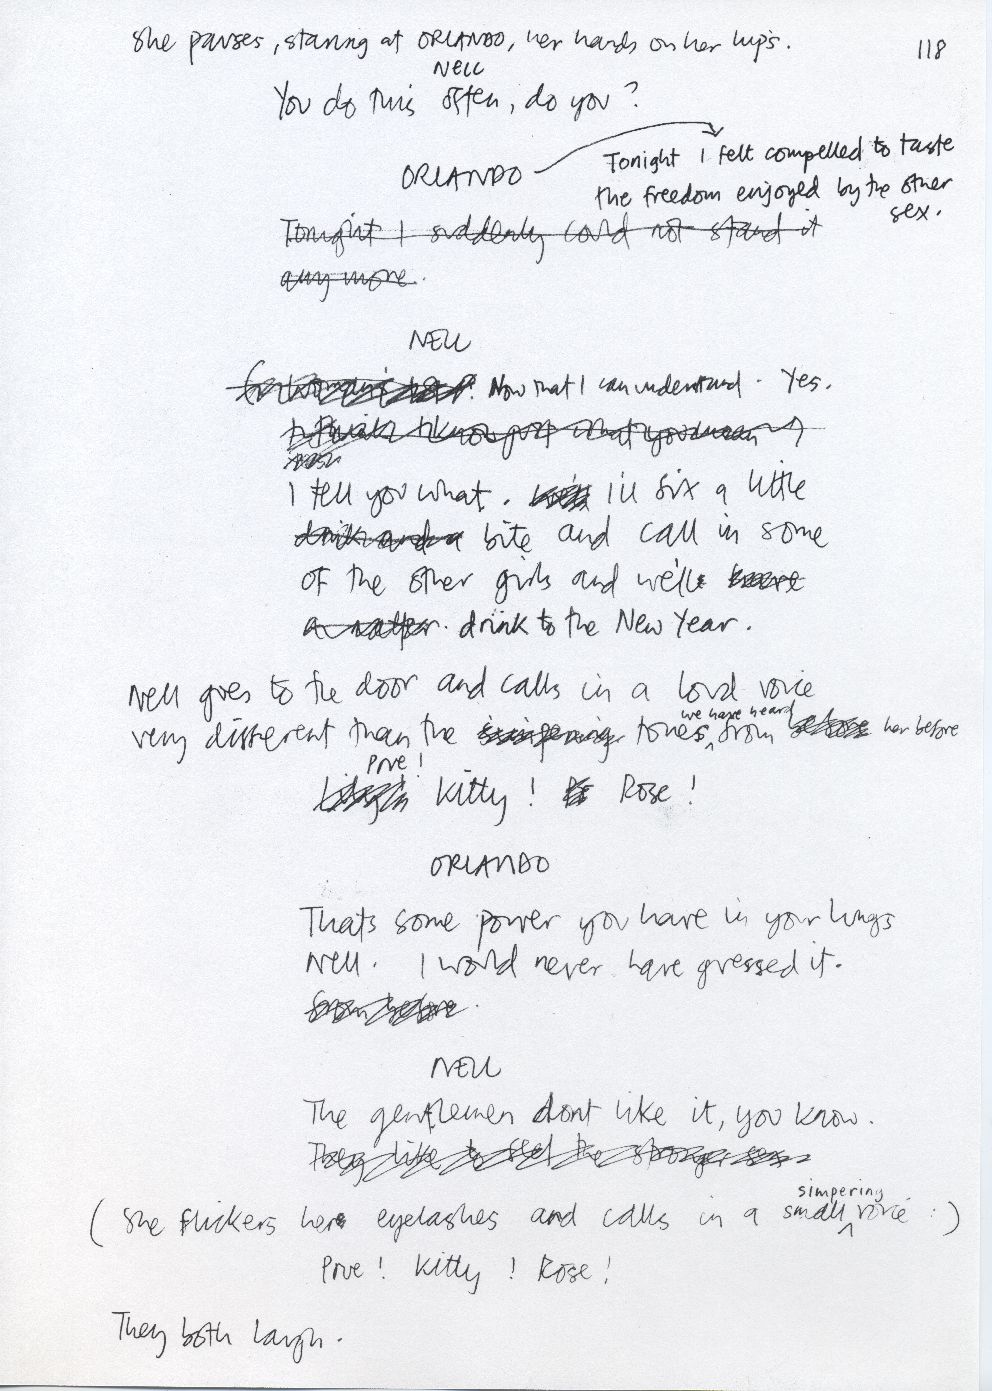 She pauses, staring at ORLANDO, her hands on her hips.
118
NELL
You do this often, do you?
ORLANDO
Tonight I felt compelled to taste
the freedom enjoyed by the other
sex.
Tonight I suddenly could not stand it
any more.
NELL
Now that I can understand. Yes.
I think I know just what you mean
I tell you what. I'll fix a little
drink and a bite and call in some
of the other girls and we'll have
a natter. drink to the New Year.
Nell goes to the door and calls in a loud voice
we have heard
very different than the simpering tones from before her before
Prue!
Kitty! Rose!
ORLANDO
Thats some power you have in your lungs
Nell. I would never have guessed it.
from before.
NELL
The gentlemen dont like it, you know.
They like to feel the stronger sex
simpering
(She flickers her eyelashes and calls in a small voice:)
Prue! Kitty! Rose!
They both laugh.